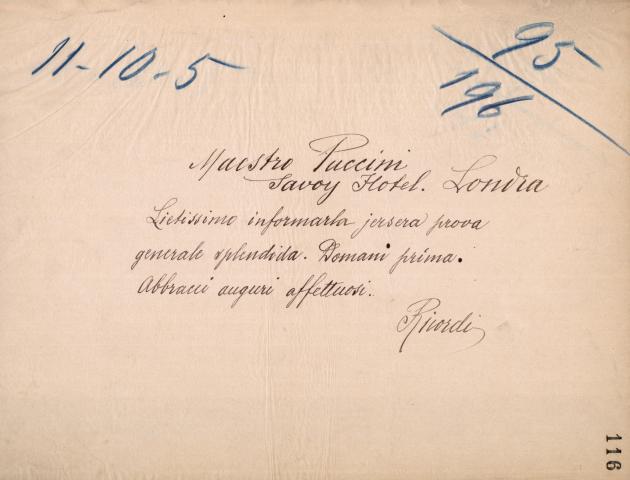 11-10-5
95
196
Maestro Puccini
Savoy Hotel. Londra
Lietissimo informarla jersera prova
generale splendida. Domani prima.
Abbracci auguri affettuosi.
Ricordi
116